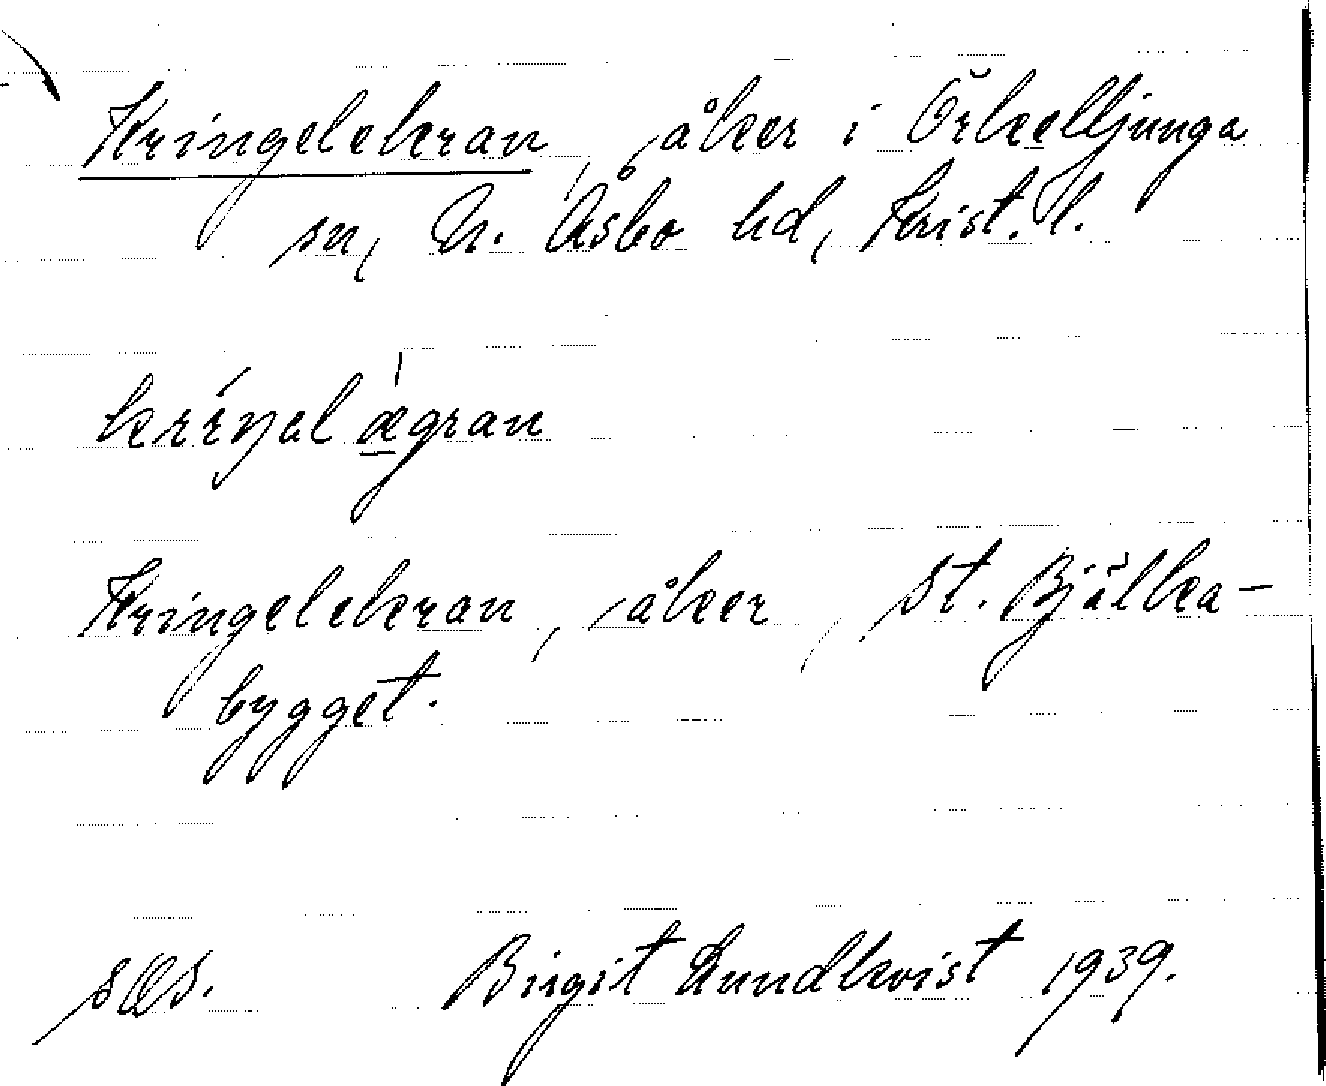 Kringelekran, åker i Örkelljunga
sn, N. Åsbo hd, Krist. l.
kríŋəl ægran
Kringelekran, åker, St. Bjälka-
bygget.
Birgit Lundkvist 1939.